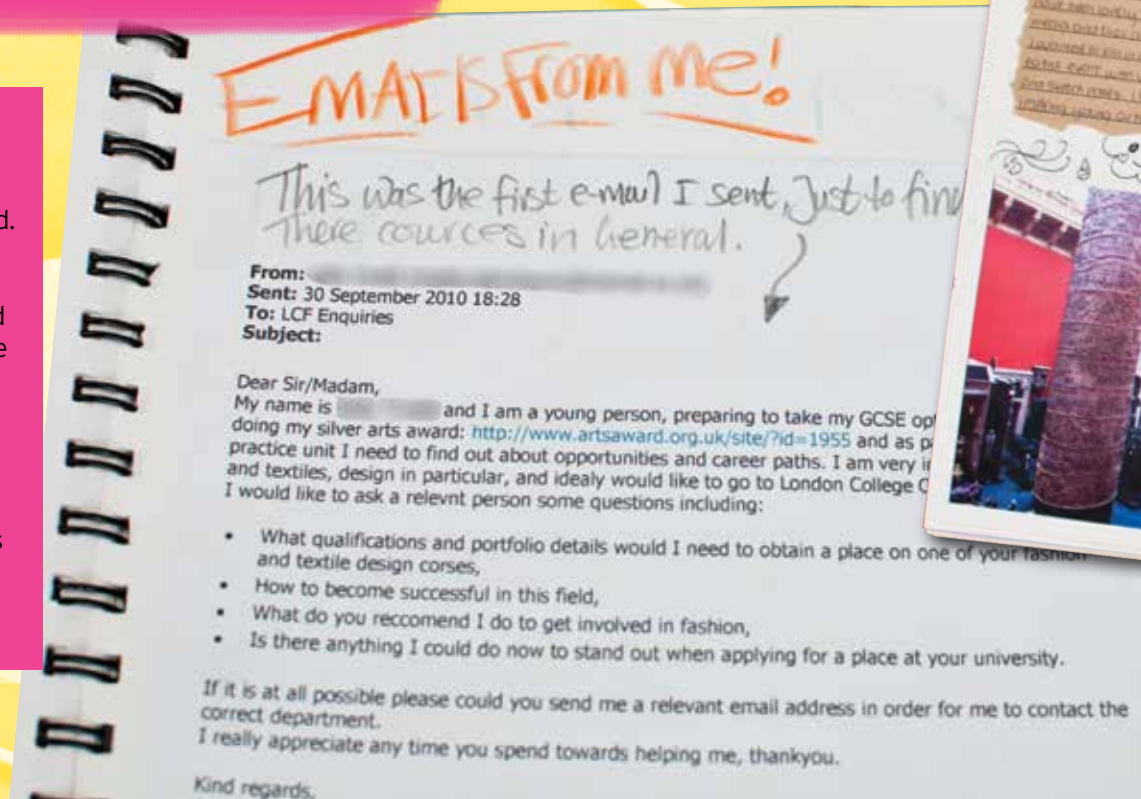 EMAILS From me!
This was the first e-mail I sent, Just to find
There cources in General.
From:
Sent: 30 September 2010 18:28
To: LCF Enquiries
Subject:
Dear Sir/Madam,
My name is and I am a young person, preparing to take my GCSE
doing my silver arts award: http://www.artsaward.org.uk/site/?id=1955 and as
practice unit I need to find out about opportunities and career paths. I am very
and textiles, design in particular, and idealy would like to go to London College
I would like to ask a relevnt person some questions including:
• What qualifications and portfolio details would I need to obtain a place on one of your fashion
and textile design corses,
• How to become successful in this field,
• What do you reccomend I do to get involved in fashion,
• Is there anything I could do now to stand out when applying for a place at your university.
If it is at all possible please could you send me a relevant email address in order for me to contact the
correct department.
I really appreciate any time you spend towards helping me, thankyou.
Kind regards,